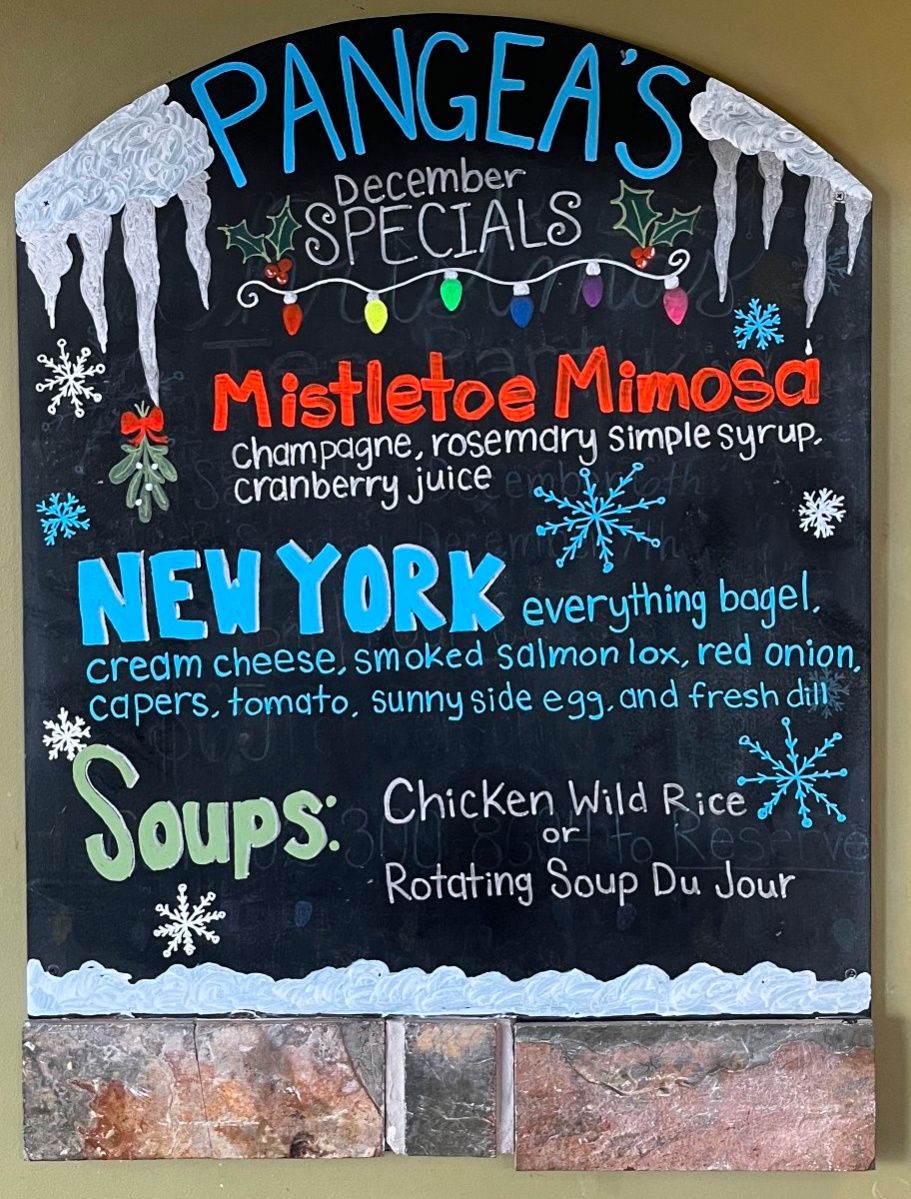 PANGEA'S
December
SPECIALS
Mistletoe Mimosa
champagne, rosemary simple syrup,
cranberry juice
NEW YORK everything bagel,
cream cheese, smoked salmon lox, red onion,
capers, tomato, sunny side egg, and fresh dill
Soups: Chicken Wild Rice
or
Rotating Soup Du Jour